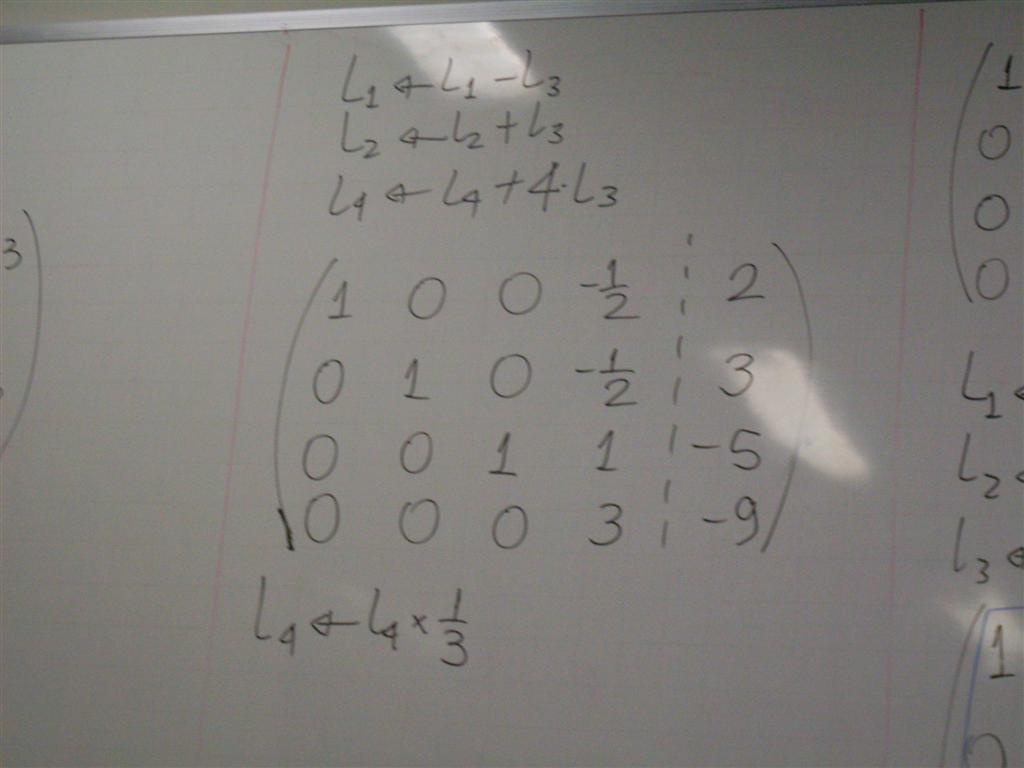 L1 ← L1 - L3
L2 ← L2 + L3
L4 ← L4 + 4·L3
3
1 0 0 -1/2 ¦ 2
0 1 0 -1/2 ¦ 3
0 0 1 1 ¦ -5
0 0 0 3 ¦ -9
L4 ← L4 × 1/3
1
0
0
0
L1 ←
L2 ←
L3 ←
1
0